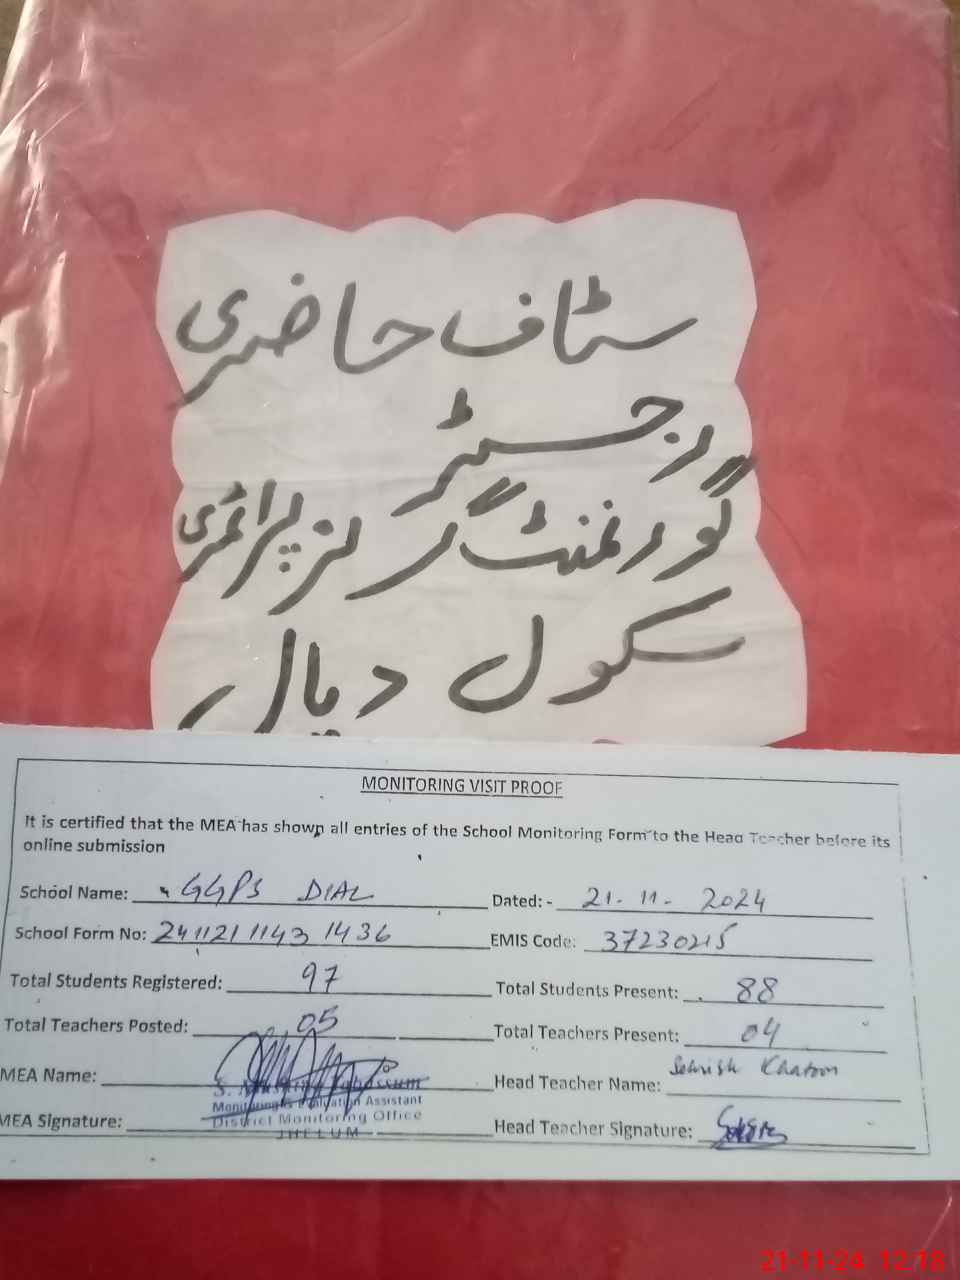 سٹاف حاضری
رجسٹر
گورنمنٹ گرلز پرائمری
سکول دیال
MONITORING VISIT PROOF
It is certified that the MEA has shown all entries of the School Monitoring Form to the Head Teacher before its
online submission
School Name: GGPS DIAL Dated: - 21-11-2024
School Form No: 241121 1143 1436 EMIS Code: 37230215
Total Students Registered: 97 Total Students Present: 88
Total Teachers Posted: 05 Total Teachers Present: 04
MEA Name: Head Teacher Name: Sehrish Khatoon
Monitoring & Evaluation Assistant
MEA Signature: District Monitoring Office Head Teacher Signature:
JHELUM
21-11-24 12:18